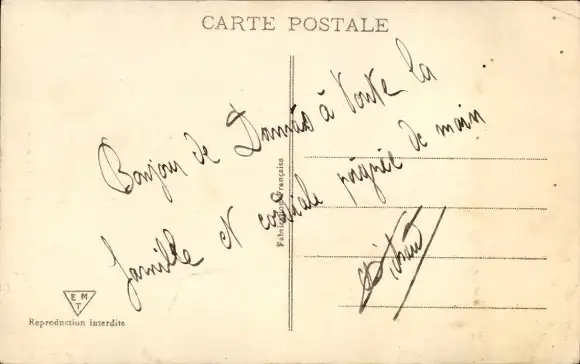 CARTE POSTALE
Bonjour de Damas à toute la
famille et cordiale poignée de main
Fabrication Française
EMT
Reproduction interdite